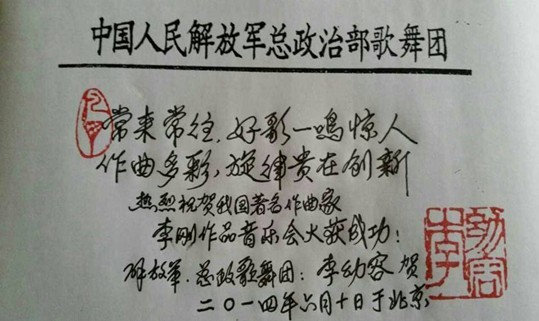 中国人民解放军总政治部歌舞团
常来常往,好歌一鸣惊人
作曲多彩,旋律贵在创新
热烈祝贺我国著名作曲家
李刚作品音乐会火获成功:
解放军.总政歌舞团:李幼容贺
二〇一四年六月十日于北京